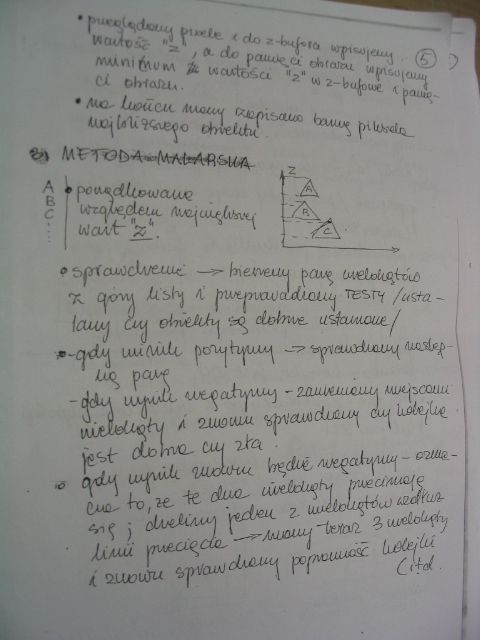 • przeglądamy piksele i do z-bufora wpisujemy
wartość "z", a do pamięci obrazu wpisujemy
minimum z wartości "z" w z-buforze i pamię-
ci obrazu.
5
• na końcu mamy zapisaną barwę piksela
najbliższego obiektu.
3) METODA MALARSKA
A
B
C
• porządkowane
względem największej
wart "z".
Z
A
B
C
• sprawdzenie → bierzemy parę wielokątów
z góry listy i przeprowadzamy TESTY /usta-
lamy czy obiekty są dobrze ustawione/
- gdy wynik pozytywny → sprawdzamy następ-
ną parę
- gdy wynik negatywny - zamieniamy miejscami
wielokąty i znowu sprawdzamy czy kolejka
jest dobra czy zła.
• gdy wynik znowu będzie negatywny - ozna-
cza to, że te dwa wielokąty przecinają
się; dzielimy jeden z wielokątów wzdłuż
linii przecięcia → mamy teraz 3 wielokąty
i znowu sprawdzamy poprawność kolejki
(itd.